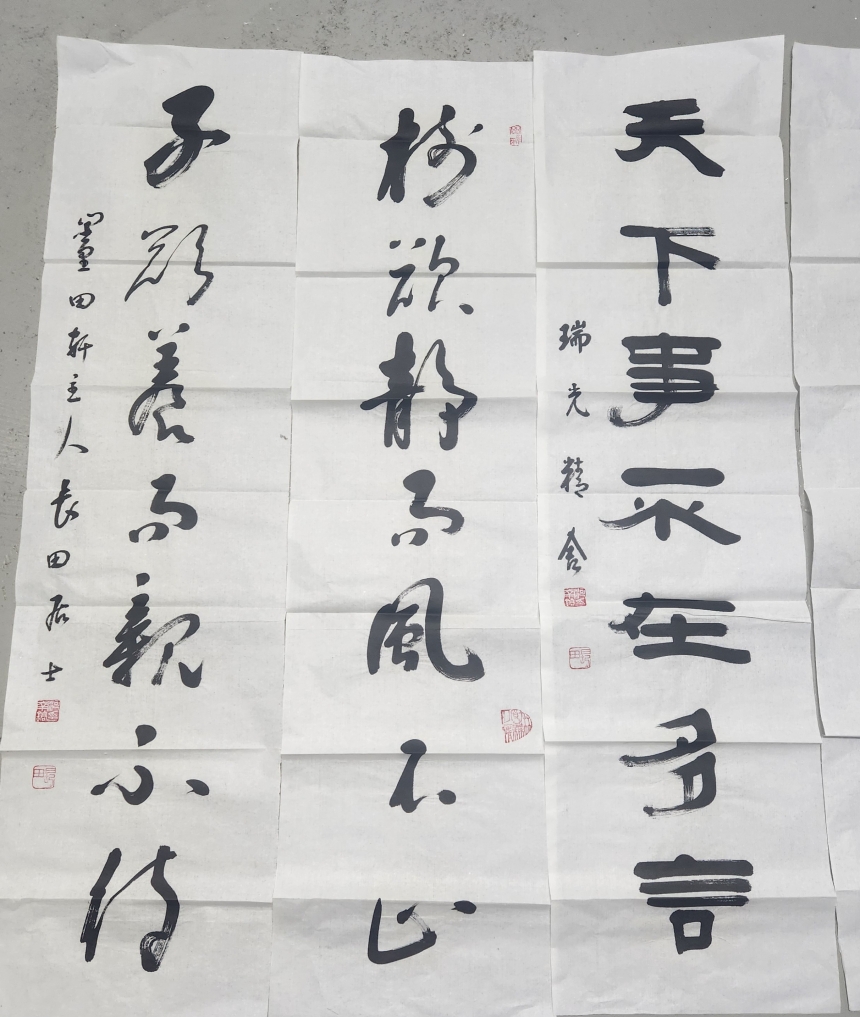 天下事不在多言
瑞光精舍
樹欲靜而風不止
子欲養而親不待
墨田軒主人長田居士